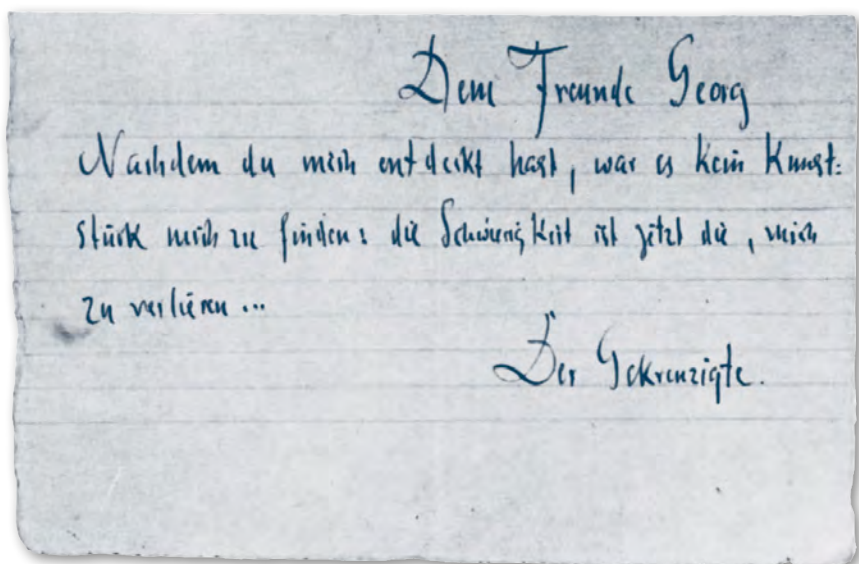 Dem Freunde Georg
Nachdem du mich entdeckt hast, war es kein Kunst:
stück mich zu finden: die Schwierigkeit ist jetzt die, mich
zu verlieren ...
Der Gekreuzigte.